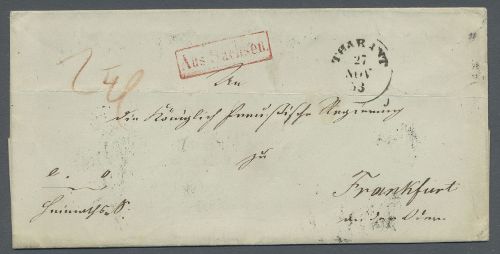 Aus Sachsen.
THARANT
27
NOV
53
An
die Königlich Preußische Regierung
zu
Frankfurt
an der Oder.
Heimaths S.